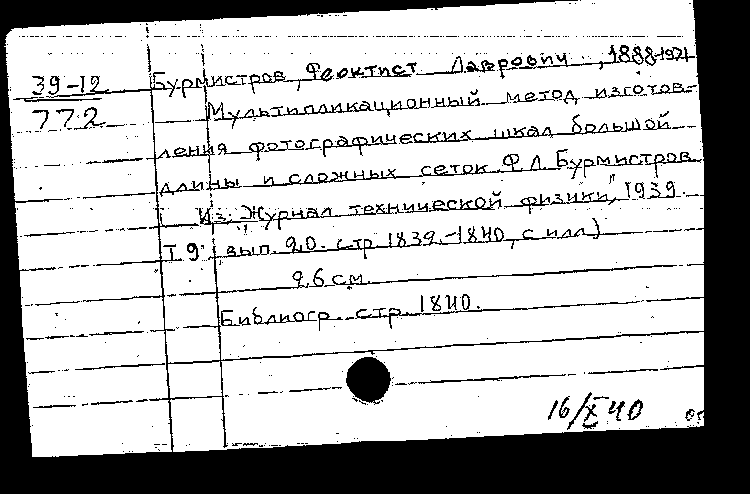 39-12
772
Бурмистров, Феоктист Лаврович, 1888-1971
Мультипликационный метод изготов-
ления фотографических шкал большой
длины и сложных сеток. Ф.Л. Бурмистров
Из: "Журнал технической физики", 1939.
Т. 9, вып. 20. стр. 1839-1840, с илл.)
26 см.
Библиогр. стр. 1840.
16/X 40